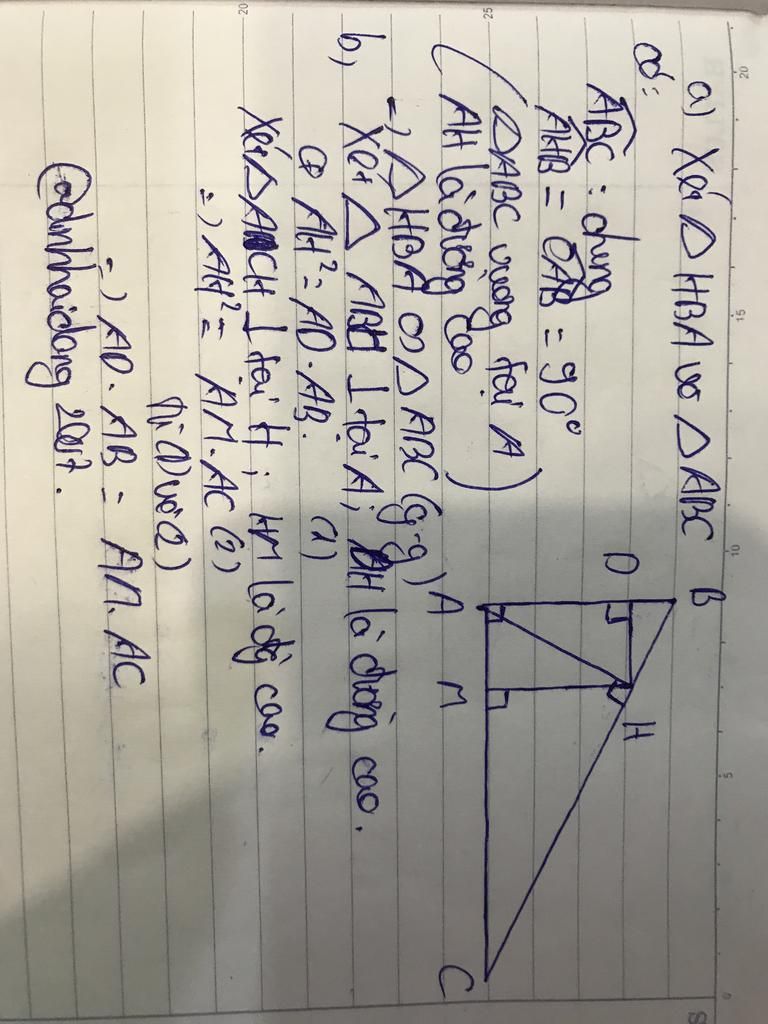 a) Xét △ HBA và △ ABC
có:
ABC : chung
AHB = CAB = 90°
( △ABC vuông tại A
AH là đường cao )
=) △ HBA ∽ △ ABC (g-g)
b, Xét △ ABH ⊥ tại A; DH là đường cao.
+ AH² = AD. AB. (1)
Xét △ ACH ⊥ tại H; HM là đg cao.
=) AH² = AM. AC (2)
Từ (1) và (2)
=) AD. AB = AM. AC
@dinhhaidang 2007.
B
D
H
A
M
C
20
15
10
5
0
20
25